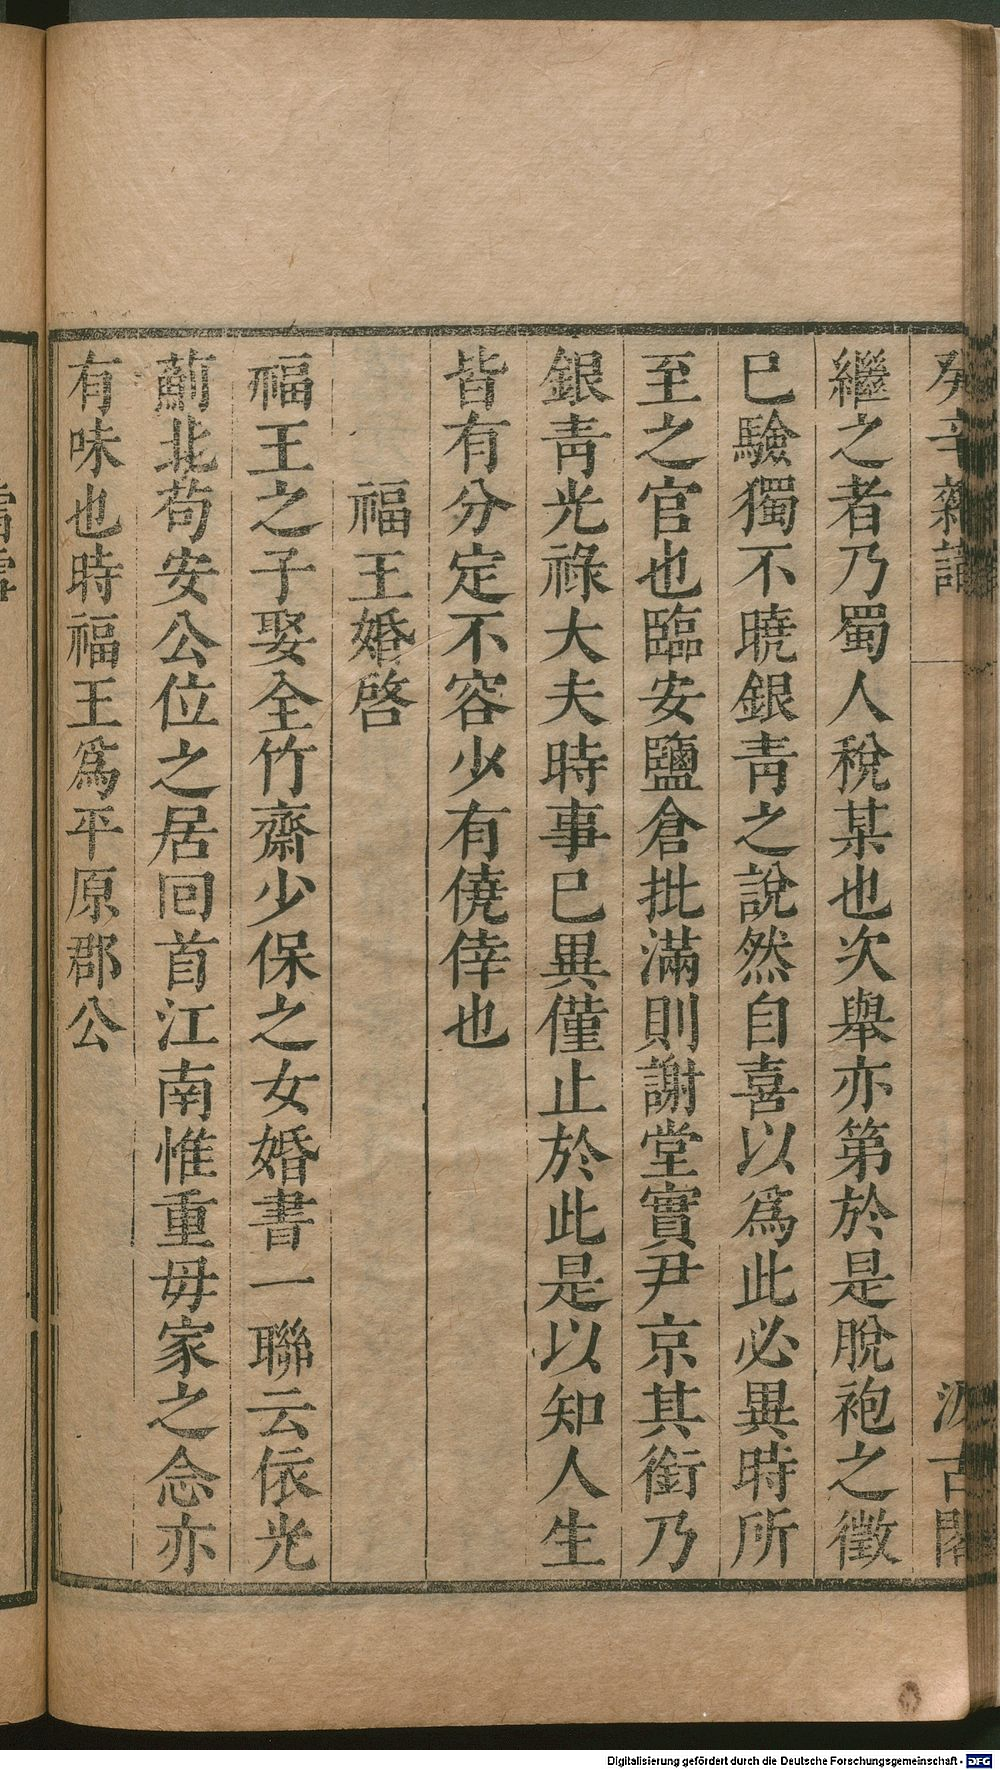 癸辛雜識
汲古閣
繼之者乃蜀人稅某也次舉亦第於是脫袍之徵
巳驗獨不曉銀青之說然自喜以爲此必異時所
至之官也臨安鹽倉批滿則謝堂實尹京其銜乃
銀青光祿大夫時事巳異僅止於此是以知人生
皆有分定不容少有僥倖也
福王婚啓
福王之子娶全竹齋少保之女婚書一聯云依光
薊北苟安公位之居回首江南惟重毋家之念亦
有味也時福王爲平原郡公
Digitalisierung gefördert durch die Deutsche Forschungsgemeinschaft - DFG